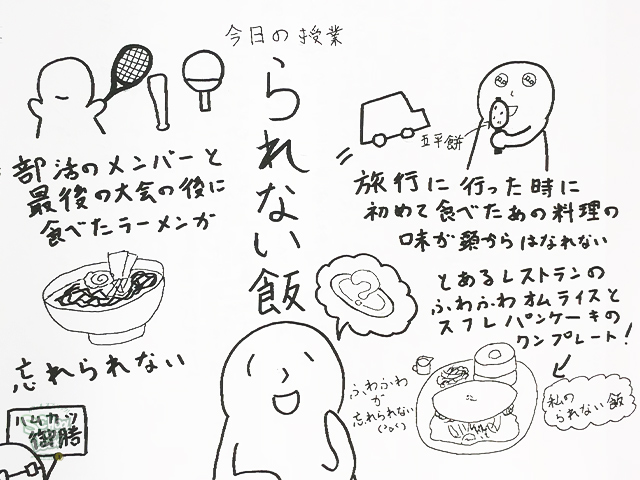 今日の授業
られない飯
部活のメンバーと
最後の大会の後に
食べたラーメンが
忘れられない
ハムカツ
御膳
五平餅
旅行に行った時に
初めて食べたあの料理の
味が頭からはなれない
?
とあるレストランの
ふわふわオムライスと
スフレパンケーキの
ワンプレート!
ふわふわ
が
忘れられない
私の
られない飯